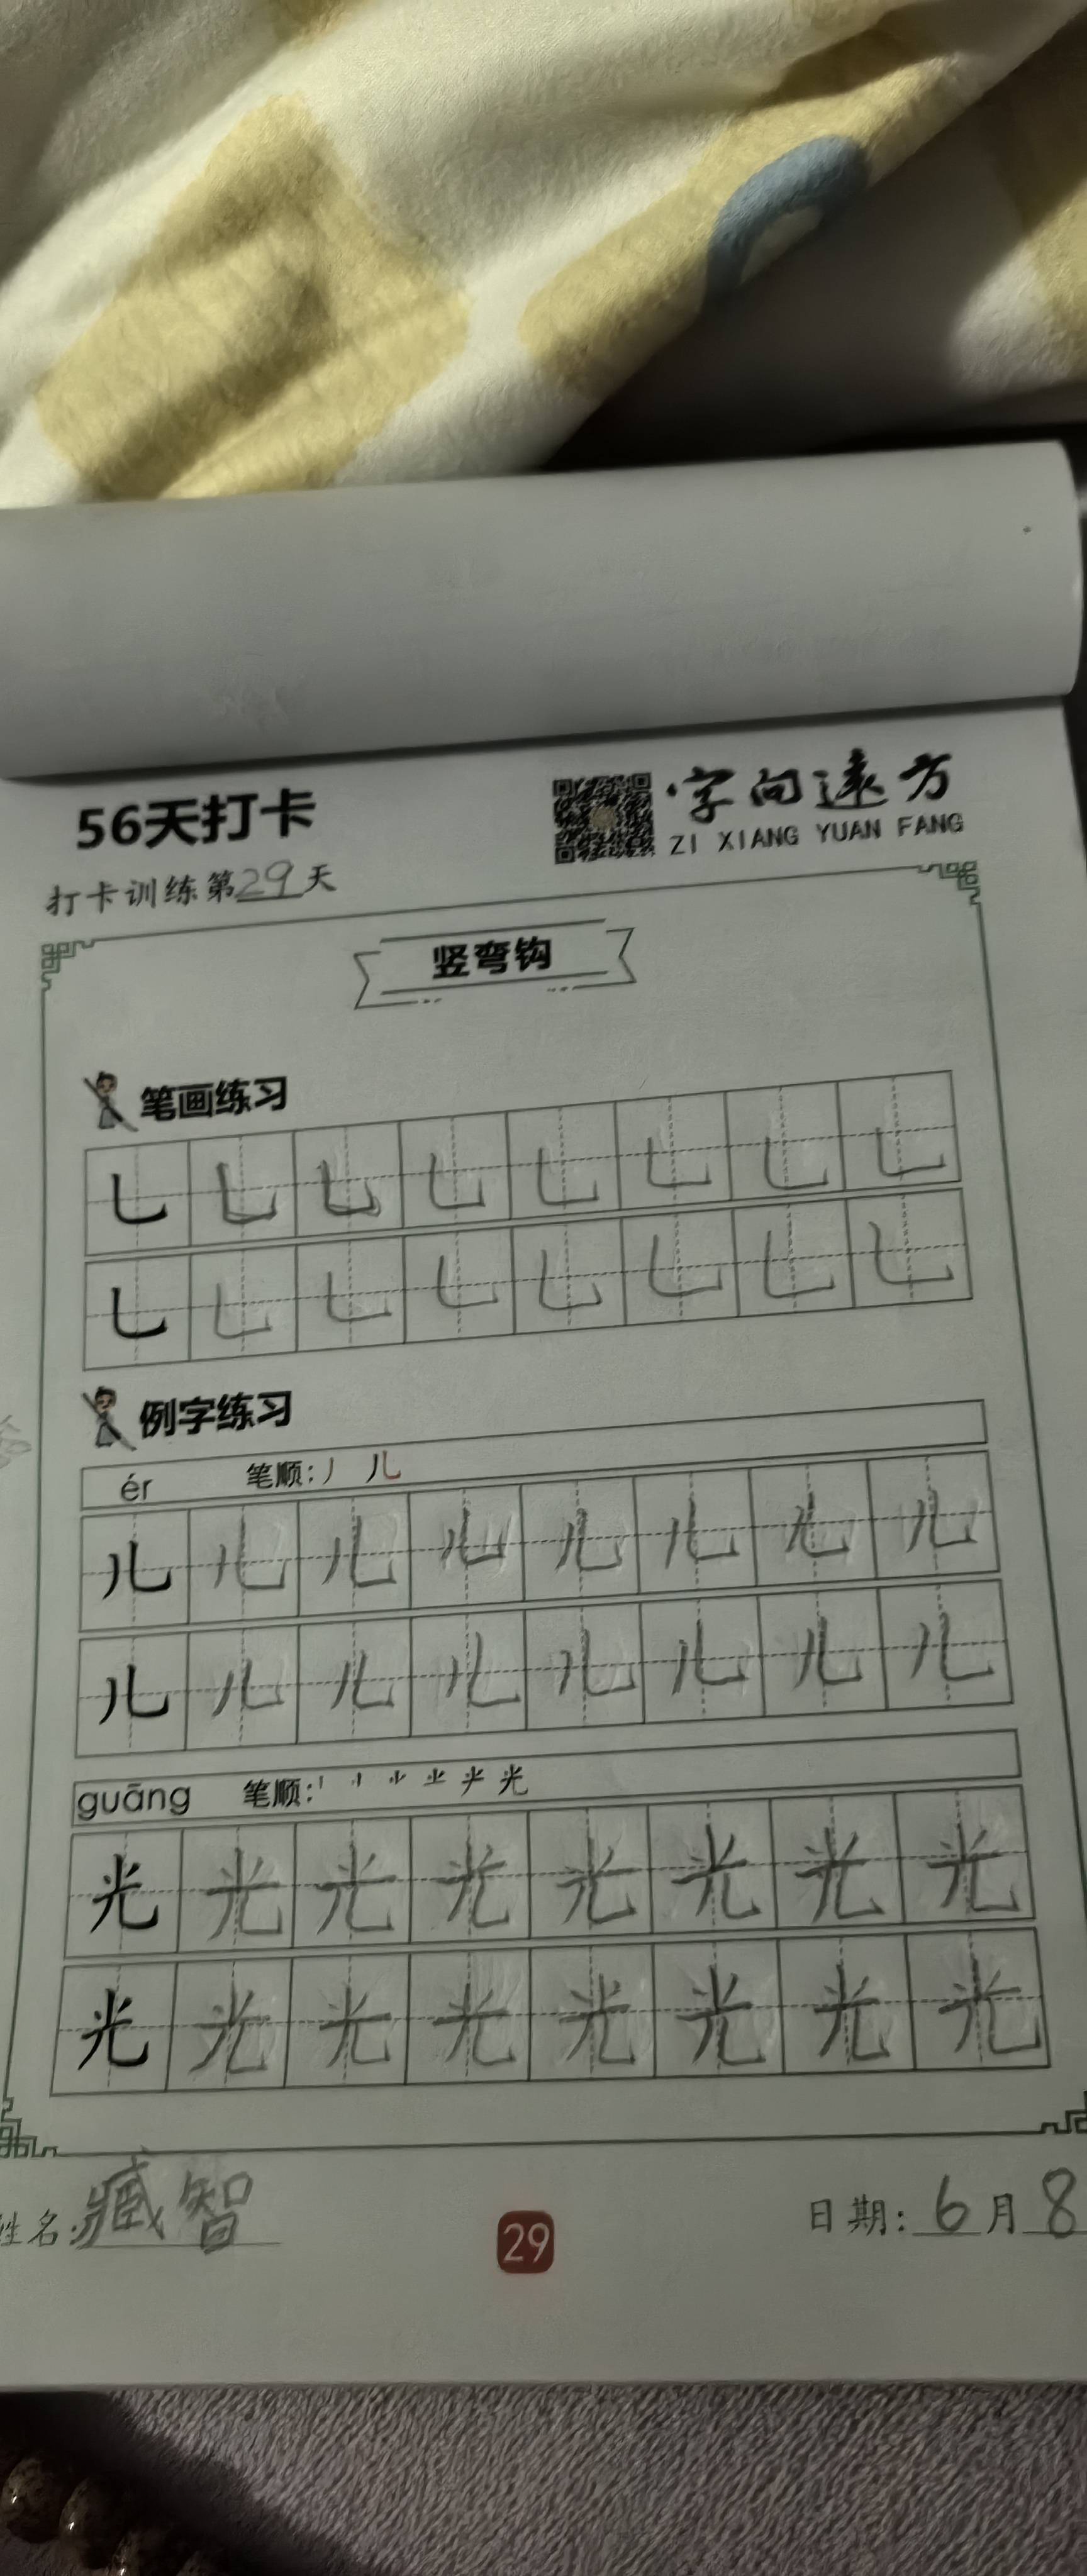 56天打卡
字向遠方
ZI XIANG YUAN FANG
打卡训练第29天
竖弯钩
笔画练习
乚乚乚乚乚乚乚乚
乚乚乚乚乚乚乚乚
例字练习
ér 笔顺:丿 儿
儿儿儿儿儿儿儿儿
儿儿儿儿儿儿儿儿
guāng 笔顺: 光
光光光光光光光光
光光光光光光光光
姓名:臧智
29
日期:6月8